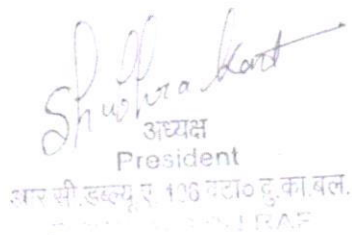 Shubhra Kant
अध्यक्ष
President
आर.सी.डब्ल्यू.ए. 106 बटा० द्रु.का.बल.
RAF